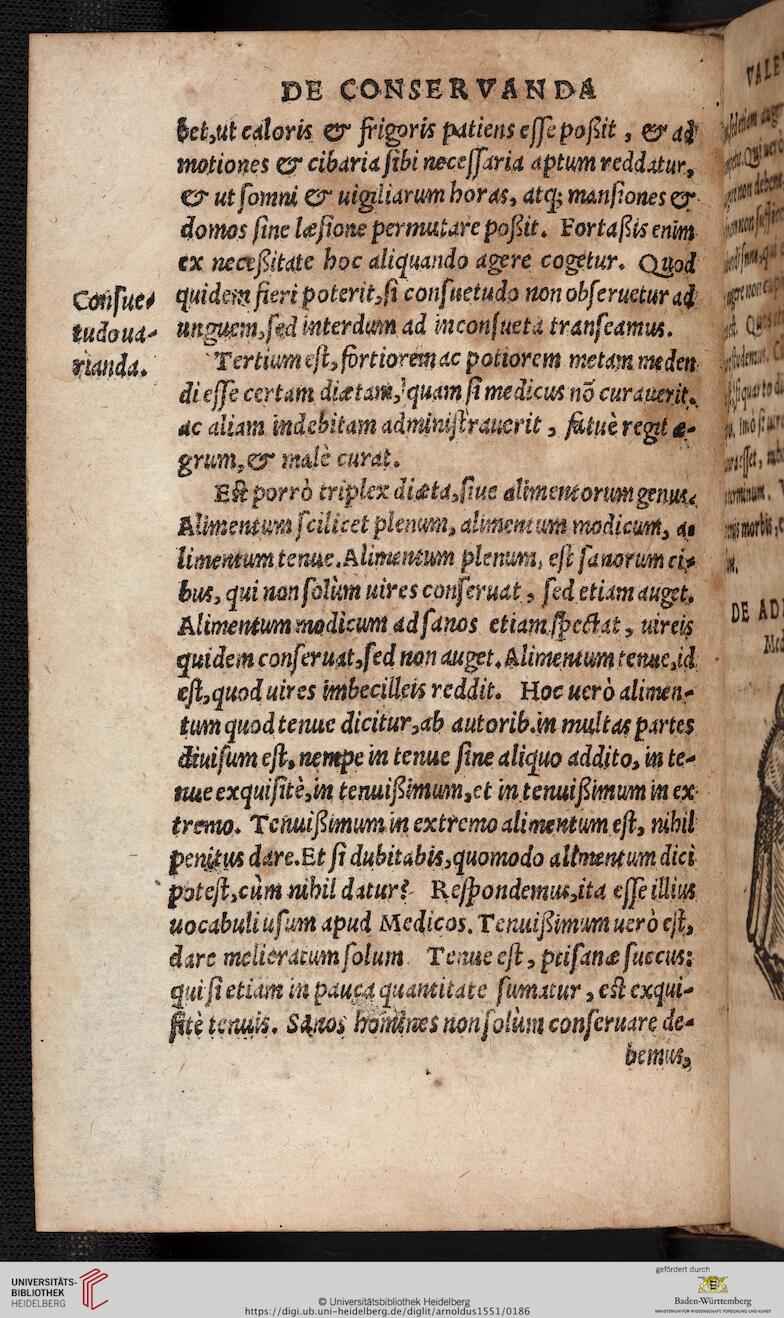 DE CONSERVANDA
bet,ut caloris & frigoris patiens eſſe poßit , & ad
motiones & cibaria ſibi neceſſaria aptum reddatur,
& ut ſomni & uigiliarum horas, atq; manſiones &
domos ſine læſione permutare poßit. Fortaßis enim
ex neceßitate hoc aliquando agere cogetur. Quod
quidem fieri poterit,ſi conſuetudo non obſeruetur ad
unguem,ſed interdum ad inconſueta tranſeamus.
Conſue-
tudo ua-
rianda.
Tertium eſt, fortiorem ac potiorem metam meden
di eſſe certam diætam, quam ſi medicus nõ curauerit,
ac aliam indebitam adminiſtrauerit , fatuè regit æ-
grum, & malè curat.
Eſt porrò triplex diæta,ſiue alimentorum genus.
Alimentum ſcilicet plenum, alimentum modicum, a-
limentum tenue. Alimentum plenum, eſt ſanorum ci-
bus, qui non ſolùm uires conſeruat , ſed etiam auget.
Alimentum modicum ad ſanos etiam ſpectat , uireis
quidem conſeruat,ſed non auget. Alimentum tenue,id
eſt,quod uires imbecilleis reddit. Hoc uerò alimen-
tum quod tenue dicitur,ab autorib.in multas partes
diuiſum eſt, nempe in tenue ſine aliquo addito, in te-
nue exquiſitè,in tenuißimum,et in tenuißimum in ex
tremo. Tenuißimum in extremo alimentum eſt, nihil
penitus dare.Et ſi dubitabis,quomodo alimentum dici
poteſt,cùm nihil datur? Reſpondemus,ita eſſe illius
uocabuli uſum apud Medicos. Tenuißimum uerò eſt,
dare melicratum ſolum. Tenue eſt , ptiſanæ ſuccus:
qui ſi etiam in pauca quantitate ſumatur , eſt exqui-
ſitè tenuis. Sanos homines non ſolùm conſeruare de-
bemus,
VALE
DE AD
Med
UNIVERSITÄTS-
BIBLIOTHEK
HEIDELBERG
© Universitätsbibliothek Heidelberg
https://digi.ub.uni-heidelberg.de/diglit/arnoldus1551/0186
gefördert durch
Baden-Württemberg
MINISTERIUM FÜR WISSENSCHAFT, FORSCHUNG UND KUNST